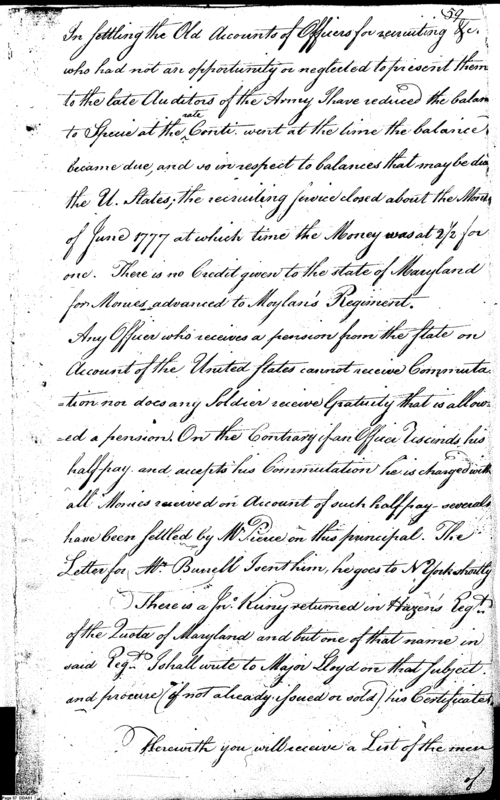 59
In settling the Old Accounts of Officers for recruiting &c.
who had not an opportunity or neglected to present them
to the late Auditors of the Army I have reduced the balan
to Specie at the rate Conti. went at the time the balance
became due, and so in respect to balances that may be due
the U. States, the recruiting service closed about the Month
of June 1777 at which time the Money was at 2½ for
one. There is no Credit given to the state of Maryland
for Monies advanced to Moylan's Regiment.
Any Officer who receives a pension from the State on
Account of the United States cannot receive Commuta
=tion nor does any Soldier receive Gratuity that is allow=
=ed a pension. On the Contrary if an Officer riscinds his
half pay and accepts his Commutation he is charged with
all Monies received on Account of such half pay - severals
have been settled by Mr. Pierce on this principal. The
Letter for Mr. Burrell I sent him, he goes to N. York shortly
There is a Jno. Kuny returned in Hazen's Regt.
of the Quota of Maryland and but one of that name in
said Regt. I shall write to Major Lloyd on that subject.
and procure (if not already issued or sold) his Certificates
Herewith you will receive a List of the men
of
Page 57